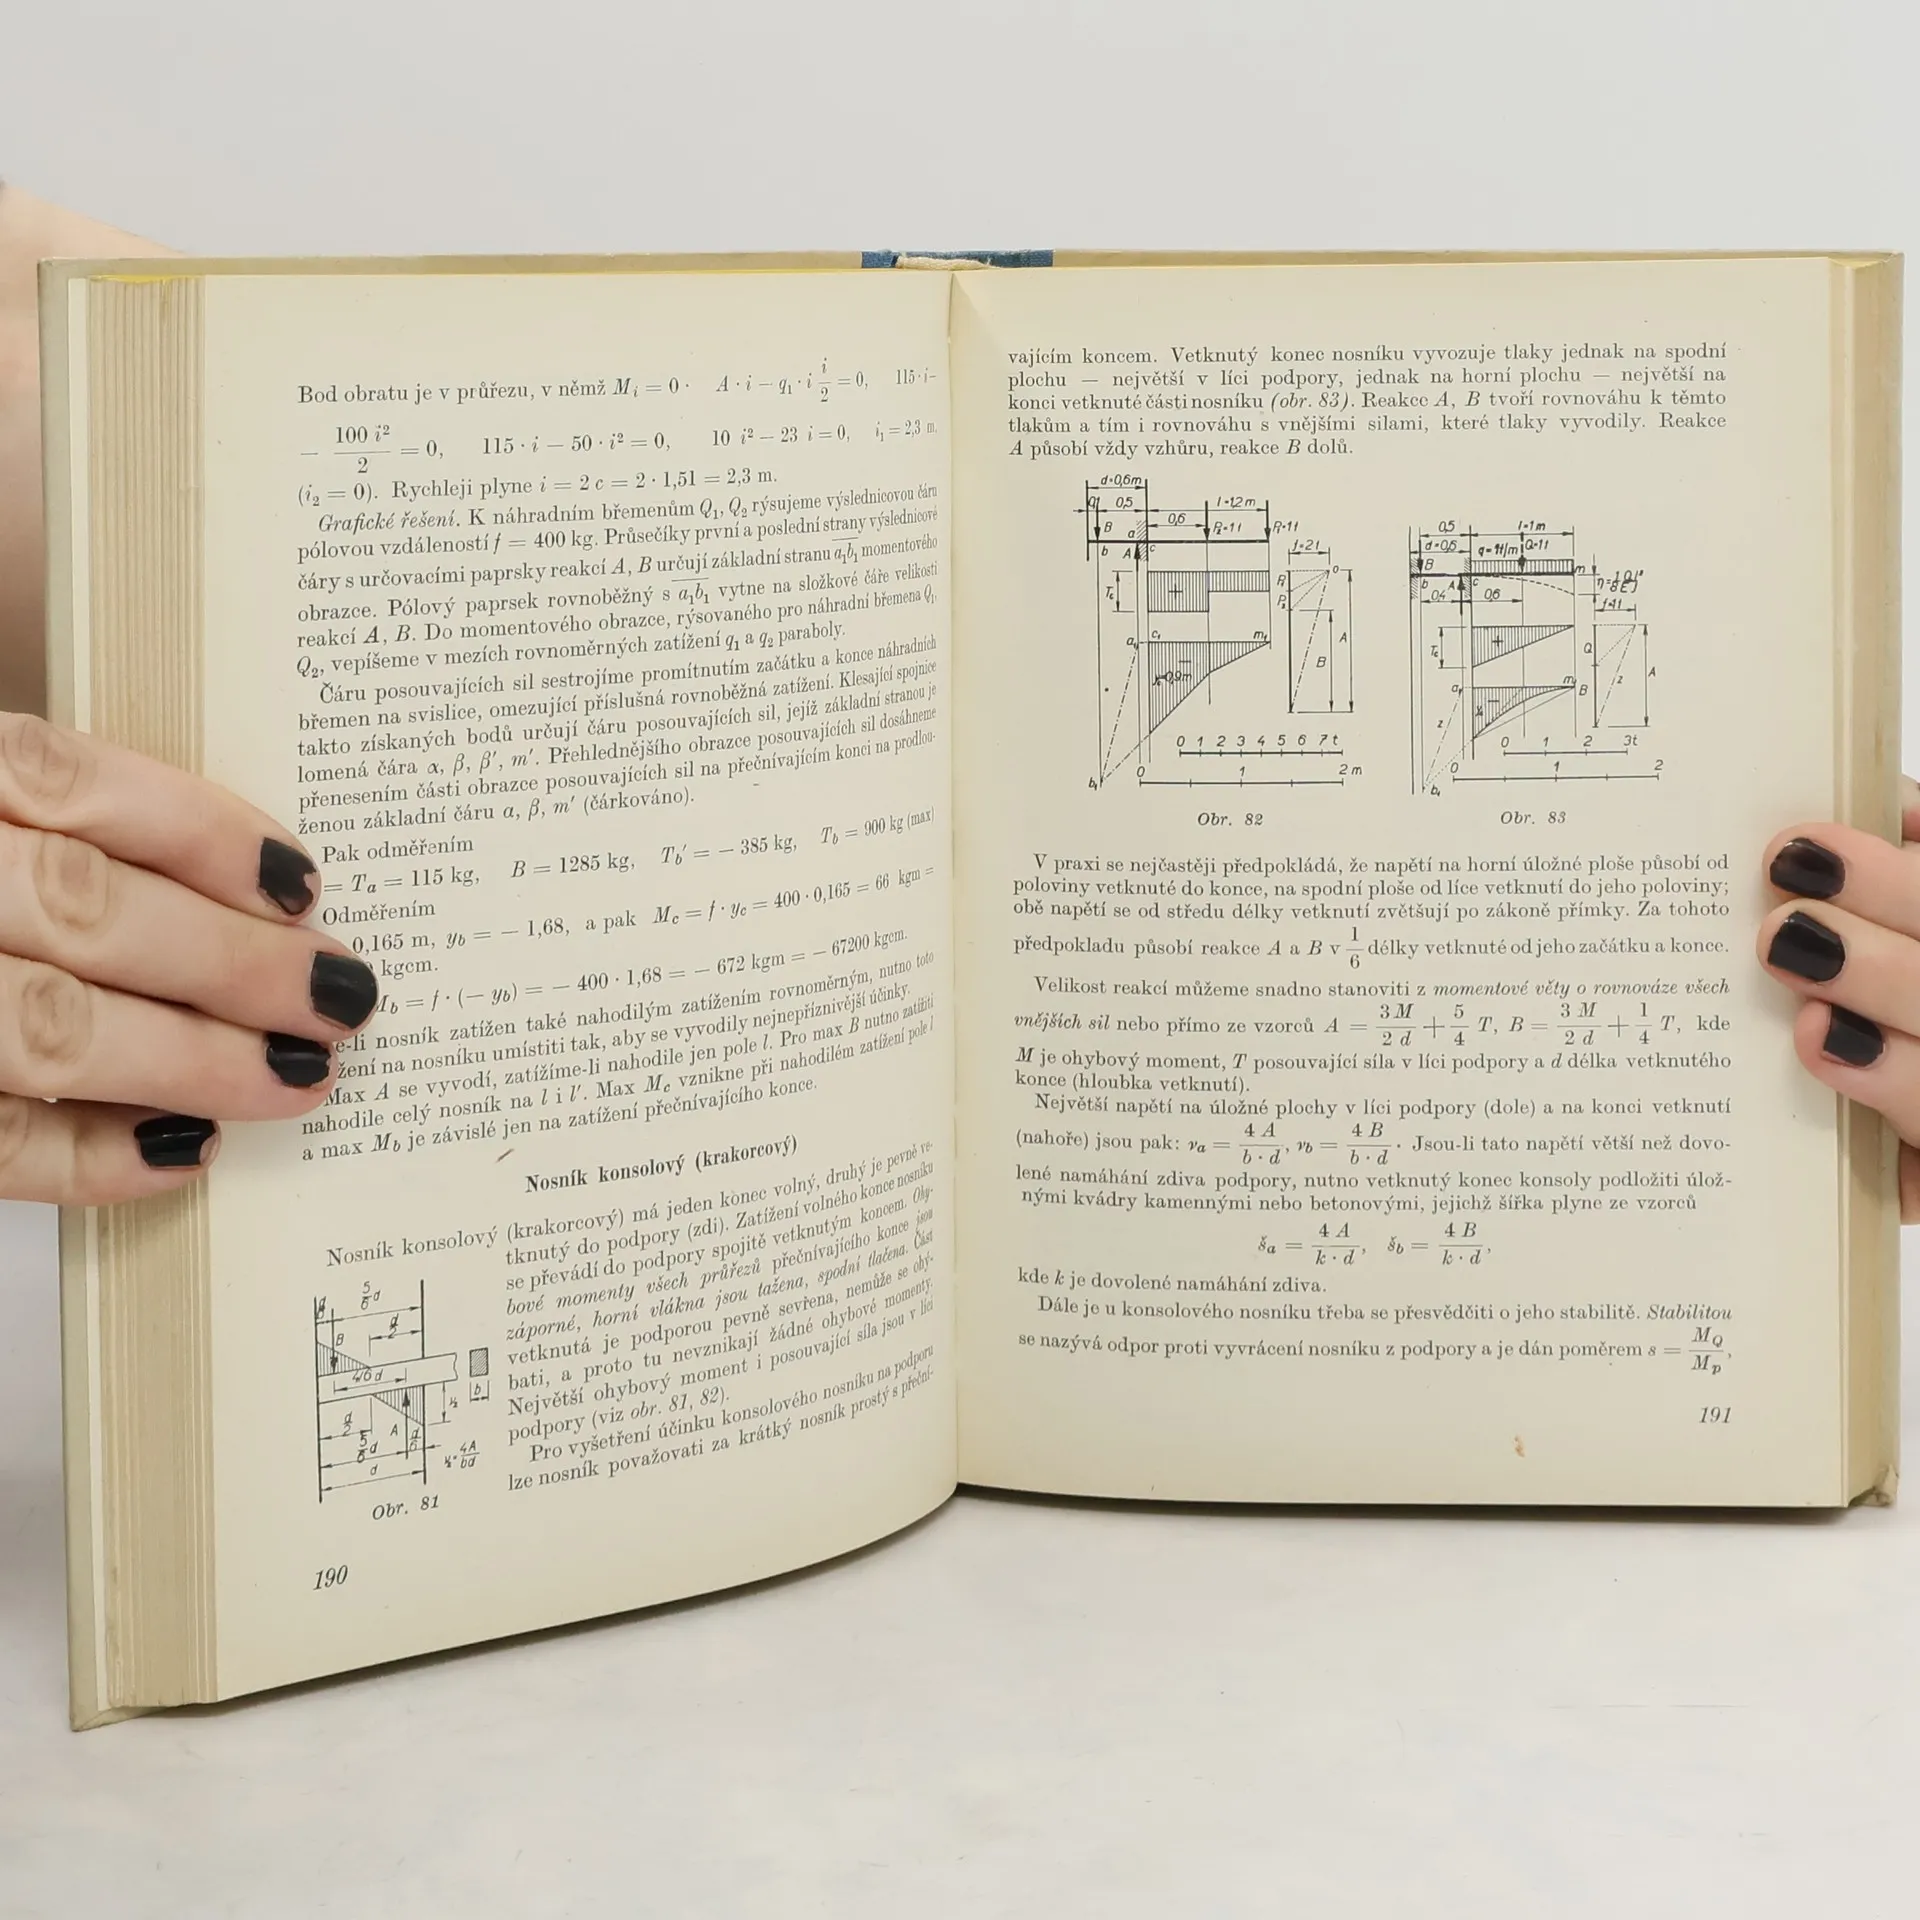 Bod obratu je v průřezu, v němž Mᵢ = 0 · A · i − q₁ · i i/2 = 0, 115 · i −
− 100 i²/2 = 0, 115 · i − 50 · i² = 0, 10 i² − 23 i = 0, i₁ = 2,3 m,
(i₂ = 0). Rychleji plyne i = 2 c = 2 · 1,51 = 2,3 m.
Grafické řešení. K náhradním břemenům Q₁, Q₂ rýsujeme výslednicovou čáru
pólovou vzdáleností f = 400 kg. Průsečíky první a poslední strany výslednicové
čáry s určovacími paprsky reakcí A, B určují základní stranu a₁b₁ momentového
obrazce. Pólový paprsek rovnoběžný s a₁b₁ vytne na složkové čáře velikosti
reakcí A, B. Do momentového obrazce, rýsovaného pro náhradní břemena Q₁,
Q₂, vepíšeme v mezích rovnoměrných zatížení q₁ a q₂ paraboly.
Čáru posouvajících sil sestrojíme promítnutím začátku a konce náhradních
břemen na svislice, omezující příslušná rovnoběžná zatížení. Klesající spojnice
takto získaných bodů určují čáru posouvajících sil, jejíž základní stranou je
lomená čára α, β, β′, m′. Přehlednějšího obrazce posouvajících sil dosáhneme
přenesením části obrazce posouvajících sil na přečnívajícím konci na prodlou-
ženou základní čáru α, β, m′ (čárkováno).
Pak odměřením
= Tₐ = 115 kg, B = 1285 kg, T_b′ = − 385 kg, T_b = 900 kg (max)
Odměřením
0,165 m, y_b = − 1,68, a pak M_c = f · y_c = 400 · 0,165 = 66 kgm =
kgcm.
M_b = f · (− y_b) = − 400 · 1,68 = − 672 kgm = − 67200 kgcm.
e-li nosník zatížen také nahodilým zatížením rovnoměrným, nutno toto
žení na nosníku umístiti tak, aby se vyvodily nejnepříznivější účinky.
Max A se vyvodí, zatížíme-li nahodile jen pole l. Pro max B nutno zatížiti
nahodile celý nosník na l i l′. Max M_c vznikne při nahodilém zatížení pole l
a max M_b je závislé jen na zatížení přečnívajícího konce.
Nosník konsolový (krakorcový)
Nosník konsolový (krakorcový) má jeden konec volný, druhý je pevně ve-
tknutý do podpory (zdi). Zatížení volného konce nosníku
se převádí do podpory spojitě vetknutým koncem. Ohy-
bové momenty všech průřezů přečnívajícího konce jsou
záporné, horní vlákna jsou tažena, spodní tlačena. Část
vetknutá je podporou pevně sevřena, nemůže se ohý-
bati, a proto tu nevznikají žádné ohybové momenty.
Největší ohybový moment i posouvající síla jsou v líci
podpory (viz obr. 81, 82).
Pro vyšetření účinku konsolového nosníku na podporu
lze nosník považovati za krátký nosník prostý s přeční-
5/6 d
d/6
B
d/2
4/6 d
b
d/2
A
d/6
5/6 d
d
4A/bd
Obr. 81
190
vajícím koncem. Vetknutý konec nosníku vyvozuje tlaky jednak na spodní
plochu — největší v líci podpory, jednak na horní plochu — největší na
konci vetknuté části nosníku (obr. 83). Reakce A, B tvoří rovnováhu k těmto
tlakům a tím i rovnováhu s vnějšími silami, které tlaky vyvodily. Reakce
A působí vždy vzhůru, reakce B dolů.
d=0,6m
0,1 0,5 l=1,2m
B a 0,6 P₂=1t P₁=1t
b A c
f=2t
o
T_c P₁
P₂
a₁ c₁ m₁ A
B
0 1 2 3 4 5 6 7t
b₁ 0 1 2 m
Obr. 82
0,5 l=1m
d=0,6 q=1t/m Q=1t
B m
b A c
0,4 0,6
f=1t
T_c Q
a₁ m₁ B z A
z
0 1 2 3t
b₁ 0 1 2
Obr. 83
V praxi se nejčastěji předpokládá, že napětí na horní úložné ploše působí od
poloviny vetknuté do konce, na spodní ploše od líce vetknutí do jeho poloviny;
obě napětí se od středu délky vetknutí zvětšují po zákoně přímky. Za tohoto
předpokladu působí reakce A a B v 1/6 délky vetknuté od jeho začátku a konce.
Velikost reakcí můžeme snadno stanoviti z momentové věty o rovnováze všech
vnějších sil nebo přímo ze vzorců A = 3 M/2 d + 5/4 T, B = 3 M/2 d + 1/4 T, kde
M je ohybový moment, T posouvající síla v líci podpory a d délka vetknutého
konce (hloubka vetknutí).
Největší napětí na úložné plochy v líci podpory (dole) a na konci vetknutí
(nahoře) jsou pak: νₐ = 4 A/b · d, ν_b = 4 B/b · d · Jsou-li tato napětí větší než dovo-
lené namáhání zdiva podpory, nutno vetknutý konec konsoly podložiti úlož-
nými kvádry kamennými nebo betonovými, jejichž šířka plyne ze vzorců
šₐ = 4 A/k · d, š_b = 4 B/k · d,
kde k je dovolené namáhání zdiva.
Dále je u konsolového nosníku třeba se přesvědčiti o jeho stabilitě. Stabilitou
se nazývá odpor proti vyvrácení nosníku z podpory a je dán poměrem s = M_Q/M_p,
191